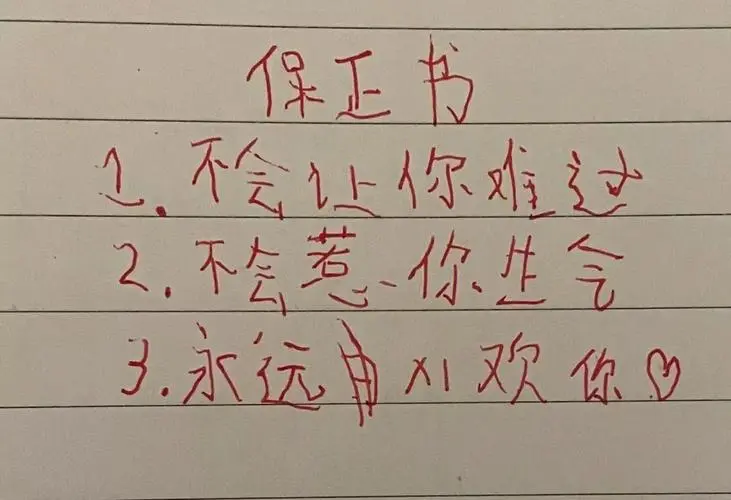 保正书
1.不会让你难过
2.不会惹你生气
3.永远 刈欢你♡